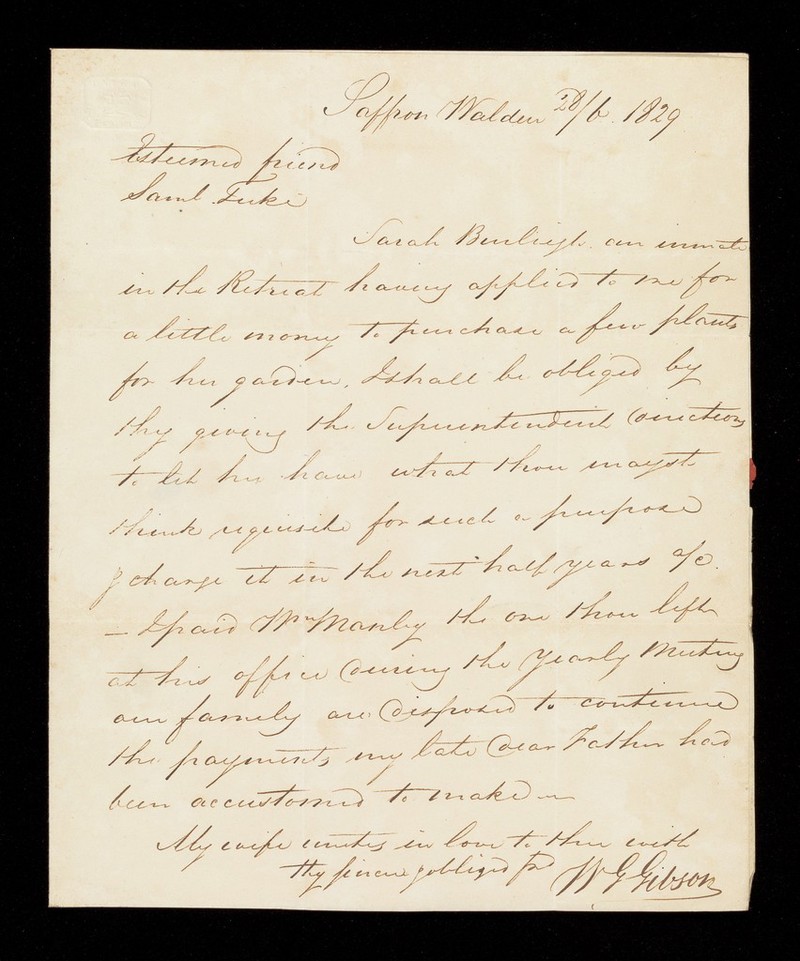 Saffron Walden 28/6. 1829
Esteemed friend
Saml. Tuke
Sarah Burleigh an inmate
in the Retreat having applied to me for
a little money to purchase a few plants
for her garden, I shall be obliged by
thy giving the Superintendent directions
to let her have what thou mayst
think requisite for such a purpose
& charge it in the next half years a/c.
— I paid Wm Manley the one thou left
at his office during the Yearly Meeting
our family are disposed to continue
the payments my late dear Father had
been accustomed to make —
My wife unites in love to thee with
thy sincere & obliged frd
W G Gibson